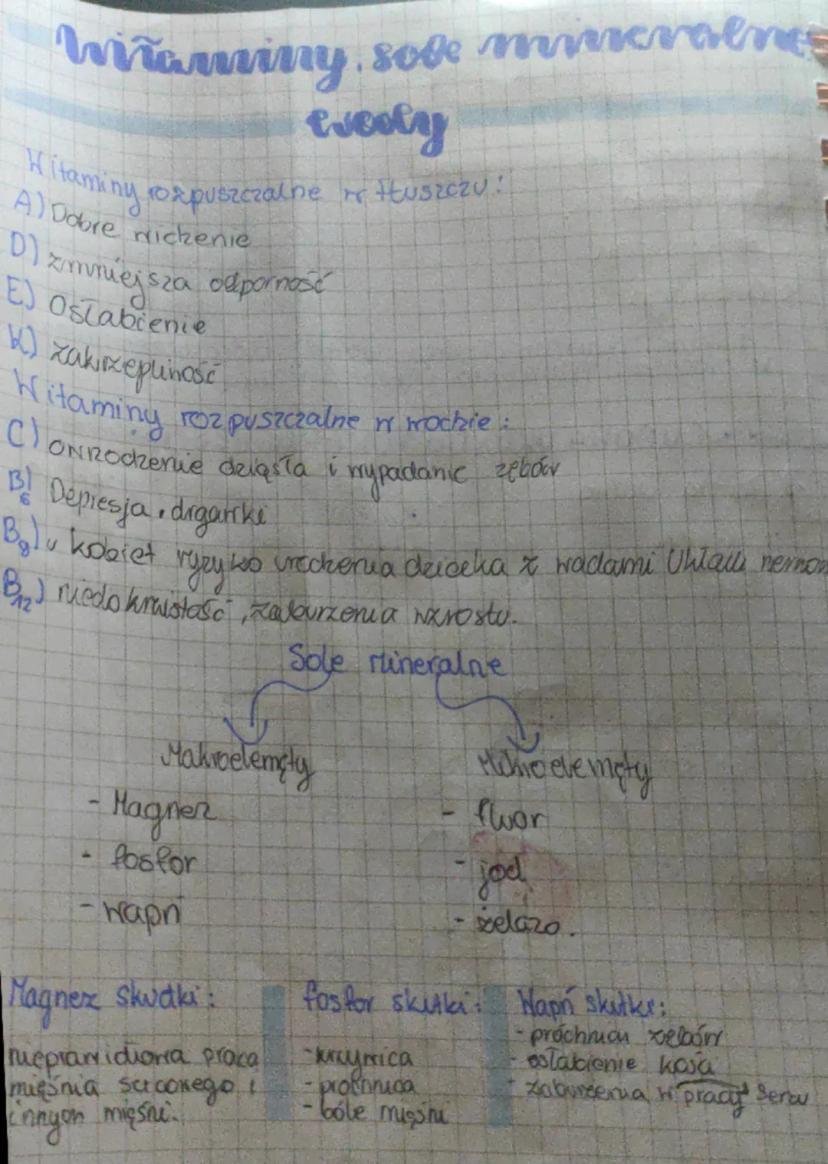 Witaminy, sole mineralne
Witaminy rozpuszczalne w tłuszczu:
A) Dobre widzenie
D) zmniejsza odporność
E) Osłabienie
K) zakrzepliwość
Witaminy rozpuszczalne w wodzie:
C) owrzodzenie dziąsła i wypadanie zębów
B6) Depresja, drgawki
B9) u kobiet ryzyko urodzenia dziecka z wadami Układu
B12) niedokrwistość, zaburzenia wzrostu.
Sole mineralne
Makroelemęty Mikroelemęty
- Magnez - fluor
- fosfor - jod
- wapń - żelazo.
Magnez skutki: fosfor skutki: Wapń skutki:
- próchnica zębów
nieprawidłowa praca - krzywica - osłabienie kości
mięśnia sercowego i - próchnica - zaburzenia w pracy serca
innych mięśni. - bóle mięśni